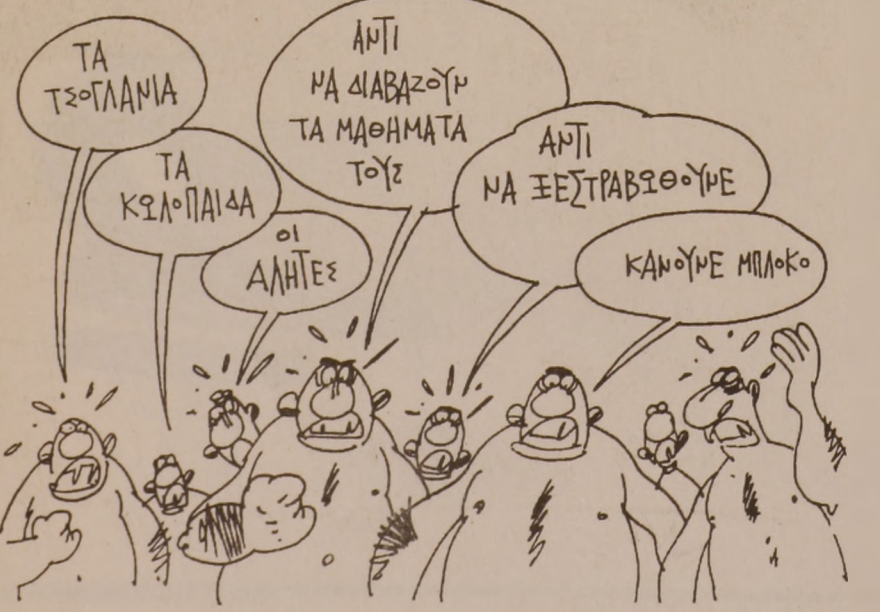 ΤΑ
ΤΣΟΓΛΑΝΙΑ
ΤΑ
ΚΩΛΟΠΑΙΔΑ
ΟΙ
ΑΛΗΤΕΣ
ΑΝΤΙ
ΝΑ ΔΙΑΒΑΖΟΥΝ
ΤΑ ΜΑΘΗΜΑΤΑ
ΤΟΥΣ
ΑΝΤΙ
ΝΑ ΞΕΣΤΡΑΒΩΘΟΥΝΕ
ΚΑΝΟΥΝΕ ΜΠΛΟΚΟ